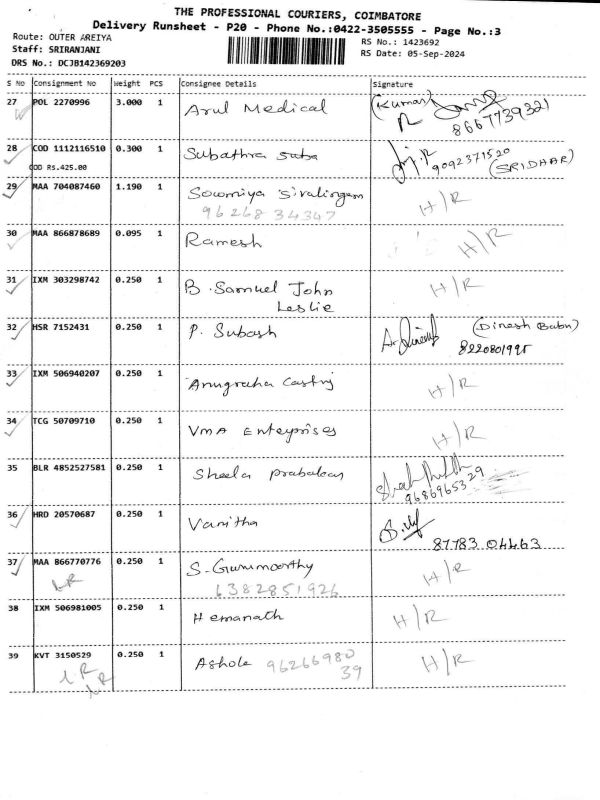 THE PROFESSIONAL COURIERS, COIMBATORE
Delivery Runsheet - P20 - Phone No.:0422-3505555 - Page No.:3
Route: OUTER AREIYA
RS No.: 1423692
Staff: SRIRANJANI
RS Date: 05-Sep-2024
DRS No.: DCJB142369203
S No Consignment No Weight PCS Consignee Details Signature
27 POL 2270996 3.000 1 Arul Medical (Kumar)
8667739321
28 COD 1112116510 0.300 1 Subathra suba 9092371520
COD Rs.425.00 (SRIDHAR)
29 MAA 704087460 1.190 1 Sowmiya Sivalingam H/R
96268 34347
30 MAA 866878689 0.095 1 Ramesh H/R
31 IXM 303298742 0.250 1 B. Samuel John H/R
Leslie
32 HSR 7152431 0.250 1 P. Subash (Dinesh Babu)
8220801995
33 IXM 506940207 0.250 1 Anugraha Casting H/R
34 TCG 50709710 0.250 1 VMA Enteyprises H/R
35 BLR 4852527581 0.250 1 Sheela prabakaran
9686965329
36 HRD 20570687 0.250 1 Vanitha
87783 04463
37 MAA 866770776 0.250 1 S. Gurumoorthy H/R
6382851926
38 IXM 506981005 0.250 1 Hemanath H/R
39 KVT 3150529 0.250 1 Ashok 96266980 H/R
39